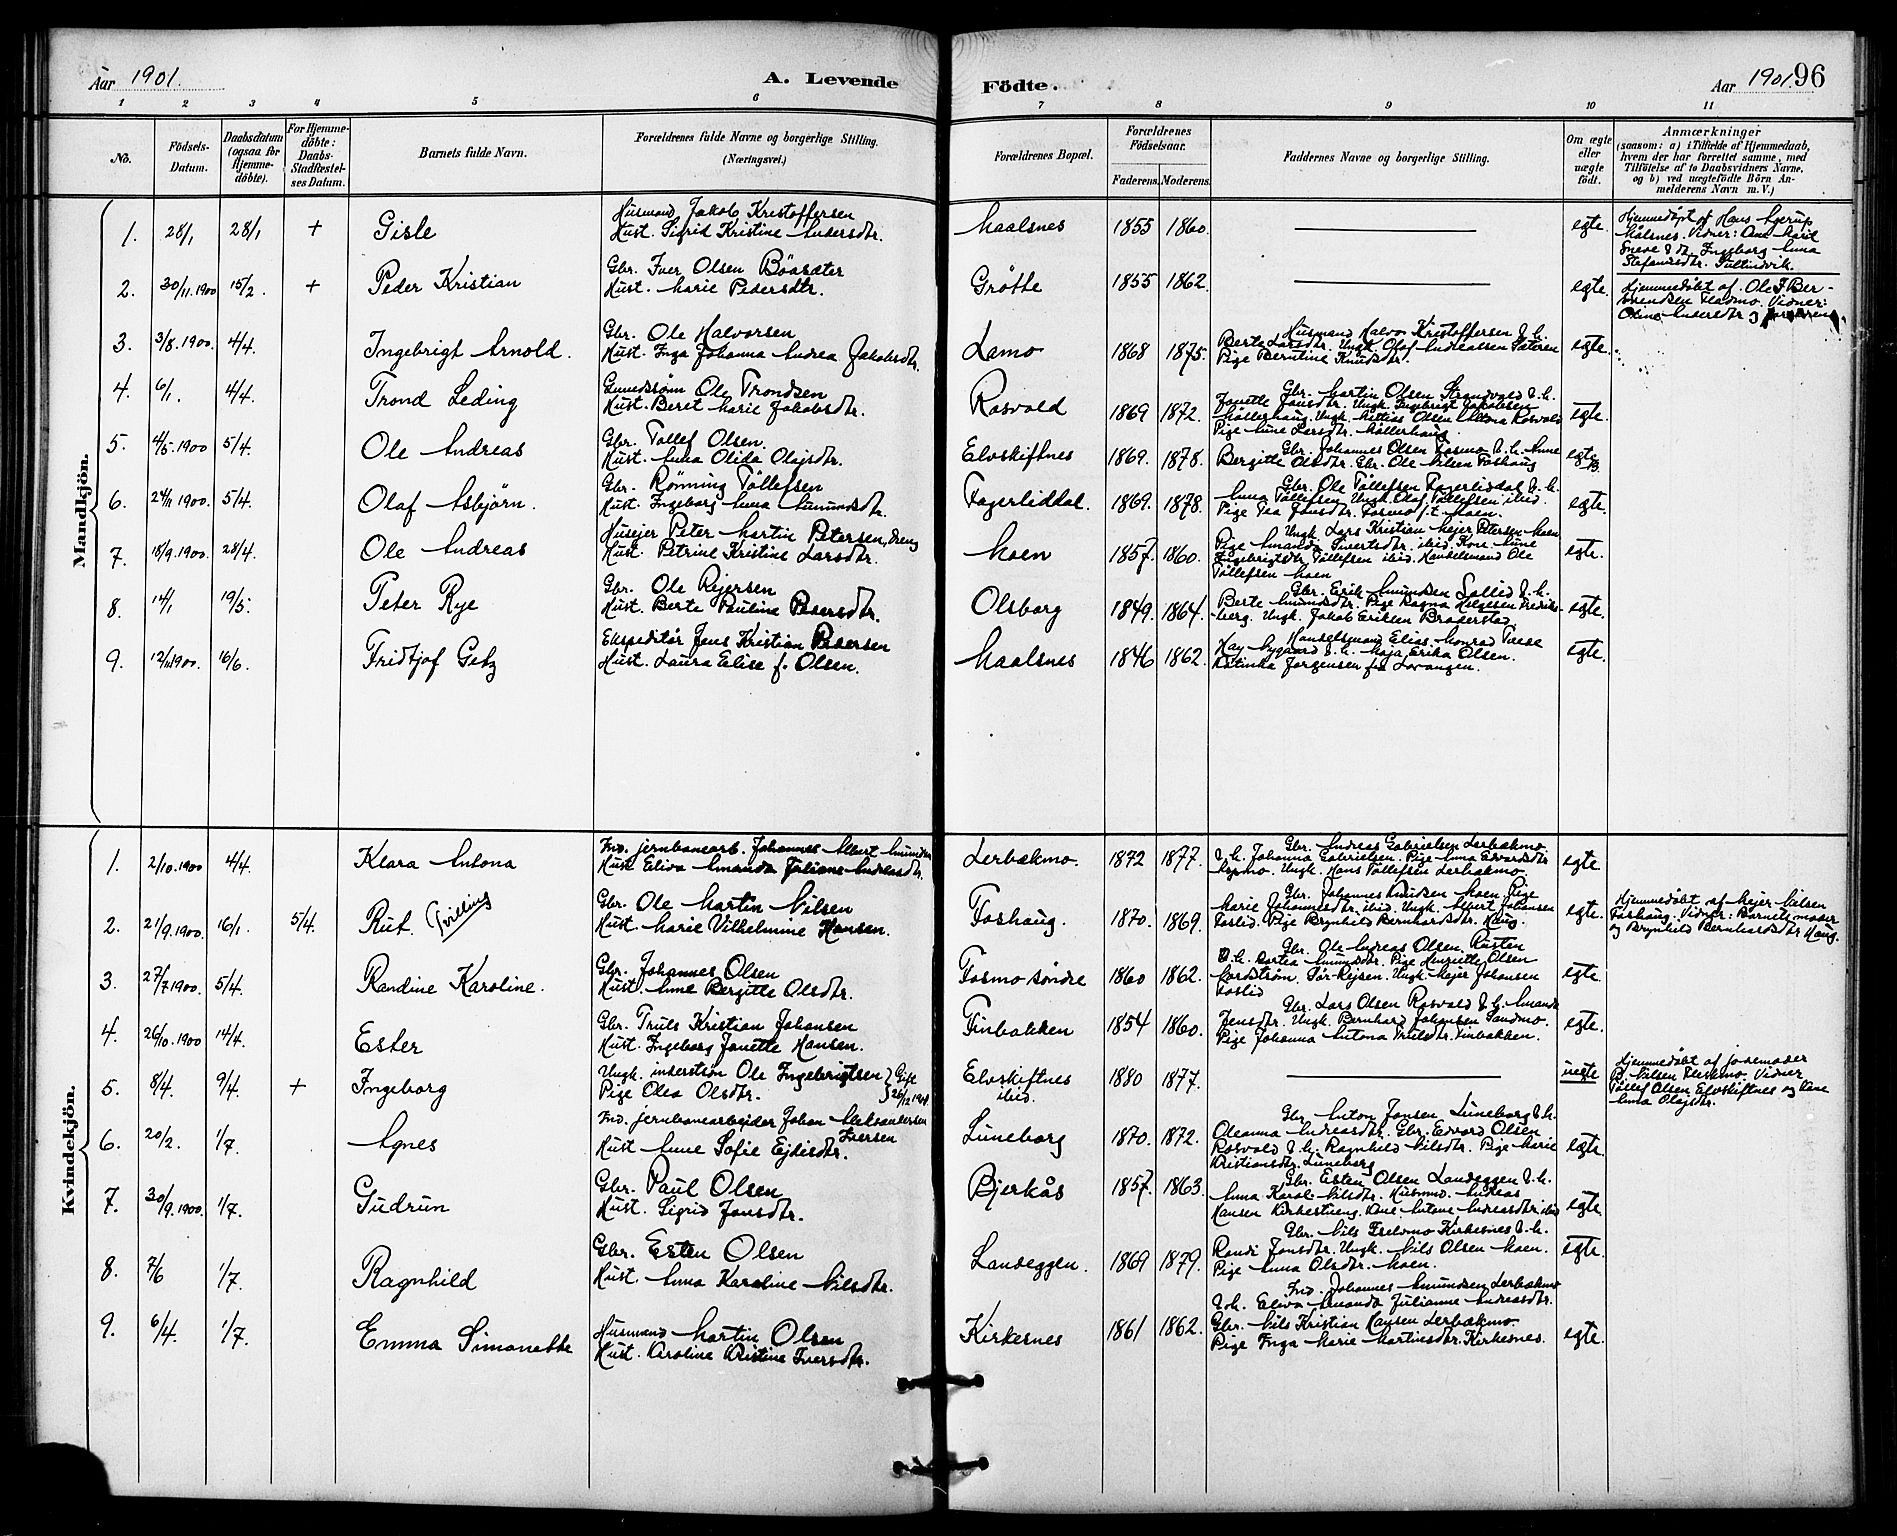 Aar 1901.
A. Levende
Födte.
Aar 1901.
96
1 2 3 4 5 6 7 8 9 10 11
No.
Födsels-
Datum.
Daabsdatum
(ogsaa for
Hjemme-
döbte).
For Hjemme-
döbte:
Daabs-
Stadfæstel-
ses Datum.
Barnets fulde Navn.
Forældrenes fulde Navne og borgerlige Stilling.
(Næringsvei.)
Forældrenes Bopæl.
Forældrenes
Födselsaar.
Faderens. Moderens.
Faddernes Navne og borgerlige Stilling.
Om ægte
eller
uægte
födt.
Anmærkninger
(saasom: a) i Tilfælde af Hjemmedaab,
hvem der har forrettet samme, med
Tilföielse af to Daabsvidners Navne,
og b) ved uægtefödte Börn An-
melderens Navn m. V.)
Mandkjön.
1. 28/1 28/1 + Gisle
Husmand Jakob Kristoffersen
Hust. Sigrid Kristine Andersdtr.
Maalsnes 1855 1860. egte.
Hjemmedöpt af Hans Agerup
Målsnes. Vidner: Ane Marit
Ingeborg Anna
Stefansdtr.
2. 30/11.1900 15/2. + Peder Kristian
Gbr. Iver Olsen Böasæter
Hust. Marie Pedersdtr.
Grötte 1855 1862. egte.
Hjemmedöbt af Ole J. Ber-
Vidner:
Oline Andersdtr og
3. 3/8.1900 4/4. Ingebrigt Arnold.
Gbr. Ole Halvorsen
Hust. Inga Johanna Andrea Jakobsdtr.
Lamo 1868 1875. egte.
Husmand Halvor Kristoffersen & h.
Berte Larsdtr. Ungk. Olaf Andreassen Sæteren
Pige Berntine Knudsdtr.
4. 6/1. 4/4. Trond Leding
Ole Trondsen
Hust. Beret Marie Jakobsdtr.
Rosvold 1869 1872. egte.
Gbr. Martin Olsen Strandvold & h.
Jonette Jonsdtr. Ungk. Ingebrigt Jakobsen
Möllerhaug. Ungk. Mattias Olsen Rosvold
Pige Anne Larsdtr. Möllerhaug
5. 4/5.1900 5/4. Ole Andreas
Gbr. Tollef Olsen
Hust. Anna Olida Olajsdtr.
Elvskiftnes 1869. 1878. egte
Gbr. Johannes Olsen Fosmo & h. Anne
Bergitte Olsdtr. Gbr. Ole Nilsen Foshaug
6. 24/11.1900. 5/4. Olaf Asbjörn.
Gbr. Rönning Töllefsen
Hust. Ingeborg Anna Amundsdtr.
Fagerliddal. 1869. 1878. egte.
Gbr. Ole Töllefsen Fagerliddal & h.
Anna Töllefsen Ungk. Olaf Töllefsen ibid.
Pige Tea Jonsdtr. Fosmo f.t. Moen.
7. 18/9.1900. 28/4. Ole Andreas
Husejer Peter Martin Petersen, Dreng
Hust. Petrine Kristine Larsdtr.
Moen 1857. 1860. egte.
Ungk. Lars Kristian Mejer Petersen Moen
Pige Amanda Sivertsdtr. ibid. Kone Anne
Ingebrigtsdtr Töllefsen ibid. Handelsmand Ole
Töllefsen Moen
8. 14/1 19/5. Peter Rye
Gbr. Ole Rejersen
Hust. Berte Paulina Pedersdtr.
Olsborg 1849. 1864. egte.
Gbr. Erik Amundsen Sollid & h.
Berte Amundsdtr. Pige Ragna Helgesen Fredriks-
-berg. Ungk. Jakob Eriksen Braderstad.
9. 12/11 1900. 16/6. Fridtjof Getz
Ekspeditör Jens Kristian Pedersen
Hust. Laura Elise f. Olsen.
Maalsnes 1846 1862. egte.
Handelsmand Elias Monrad
Hay Nygaard & h. Maja Erika Olsen.
Katinka Jørgensen fra Lavangen.
Kvindekjön.
1. 2/10.1900 4/4. Klara Antona
Fhv. jernbanearb. Johannes Albert Amundsen
Hust. Eliva Amanda Juliane Andreasdtr.
Lerbækmo. 1872 1877. egte
Gbr. Andreas Gabrielsen Lerbækmo
& h. Johanna Gabrielsen. Pige Anna Edvardsdtr
Ungk. Hans Töllefsen Lerbækmo.
2. 21/9.1900. 16/1. 5/4. Rut. Tvilling
Gbr. Ole Martin Nilsen
Hust. Marie Vilhelmine Hansen.
Foshaug. 1870. 1869. egte.
Gbr. Johannes Knudsen Moen Pige
Marie Johannesdtr. ibid. Ungk. Albert Johansen
Foslid. Pige Brynhild Bernhardsdtr. Haug.
Hjemmedöbt af Mejer Nilsen
Foshaug. Vidner: Barnets moder
og Brynhild Bernhardsdtr Haug.
3. 27/7 1900. 5/4. Randine Karoline.
Gbr. Johannes Olsen
Hust. Anne Bergitte Olsdtr.
Fosmo söndre 1860 1862. egte.
Gbr. Ole Andreas Olsen Rusten
& h. Bertea Amundsdtr. Pige Henriette Olsen
Nordström Sör-Rejsen. Ungk. Mejer Johansen
Foslid
4. 26/10.1900 14/4. Ester
Gbr. Truls Kristian Johansen
Hust. Ingeborg Jonette Hansen.
Finbakken 1854 1860. egte.
Gbr. Lars Olsen Rosvold & h. Amanda
Jensdtr. Ungk. Bernhard Johansen Sandmo.
Pige Johanna Antona Trulsdtr. Finbakken.
5. 8/4. 9/4. + Ingeborg
Ungk. inderstsøn Ole Ingebrigtsen } Gift
Pige Olea Olsdtr. } 26/12 1901
Elvskiftnes 1880 1877. uegte
ibid.
Hjemmedöbt af jordemoder
B. Nilsen Vidner
Töllef Olsen Elvskiftnes og
Anna Olajsdtr.
6. 20/2. 1/7. Agnes
Fhv. jernbanearbejder Johan Aleksandersen
Iversen
Hust. Anne Sofie Ejdisdtr.
Lüneborg 1870. 1872. egte.
Gbr. Anton Jonsen Lüneborg & h.
Oleanna Andreasdtr. Gbr. Edvard Olsen
Rosvold & h. Ragnhild Nilsdtr. Pige Marie
Kristiansdtr. Lüneborg
7. 30/9.1900. 1/7. Gudrun
Gbr. Paul Olsen
Hust. Sigrid Jonsdtr.
Bjerkås 1857. 1863. egte.
Gbr. Esten Olsen Landeggen & h.
Anna Karol. Nilsdtr. Husmand Andreas
Hansen Andreasdtr. ibid
8. 7/6 1/7. Ragnhild
Gbr. Esten Olsen
Hust. Anna Karoline Nilsdtr.
Landeggen. 1869 1879. egte.
Gbr. Nils Fredmo Kirkesnes & h.
Randi Jonsdtr. Ungk. Nils Olsen Moen.
Pige Anna Olsdtr. Moen.
9. 6/4. 1/7. Emma Simonette
Husmand Martin Olsen
Hust. Karoline Kristine Iversdtr.
Kirkesnes 1861 1862. egte.
Fhv. Johannes Amundsen Lerbækmo
& h. Eliva Amanda Julianne Andreasdtr.
Gbr. Nils Kristian Hansen Lerbækmo.
Pige Inga Marie Martinsdtr. Kirkesnes.